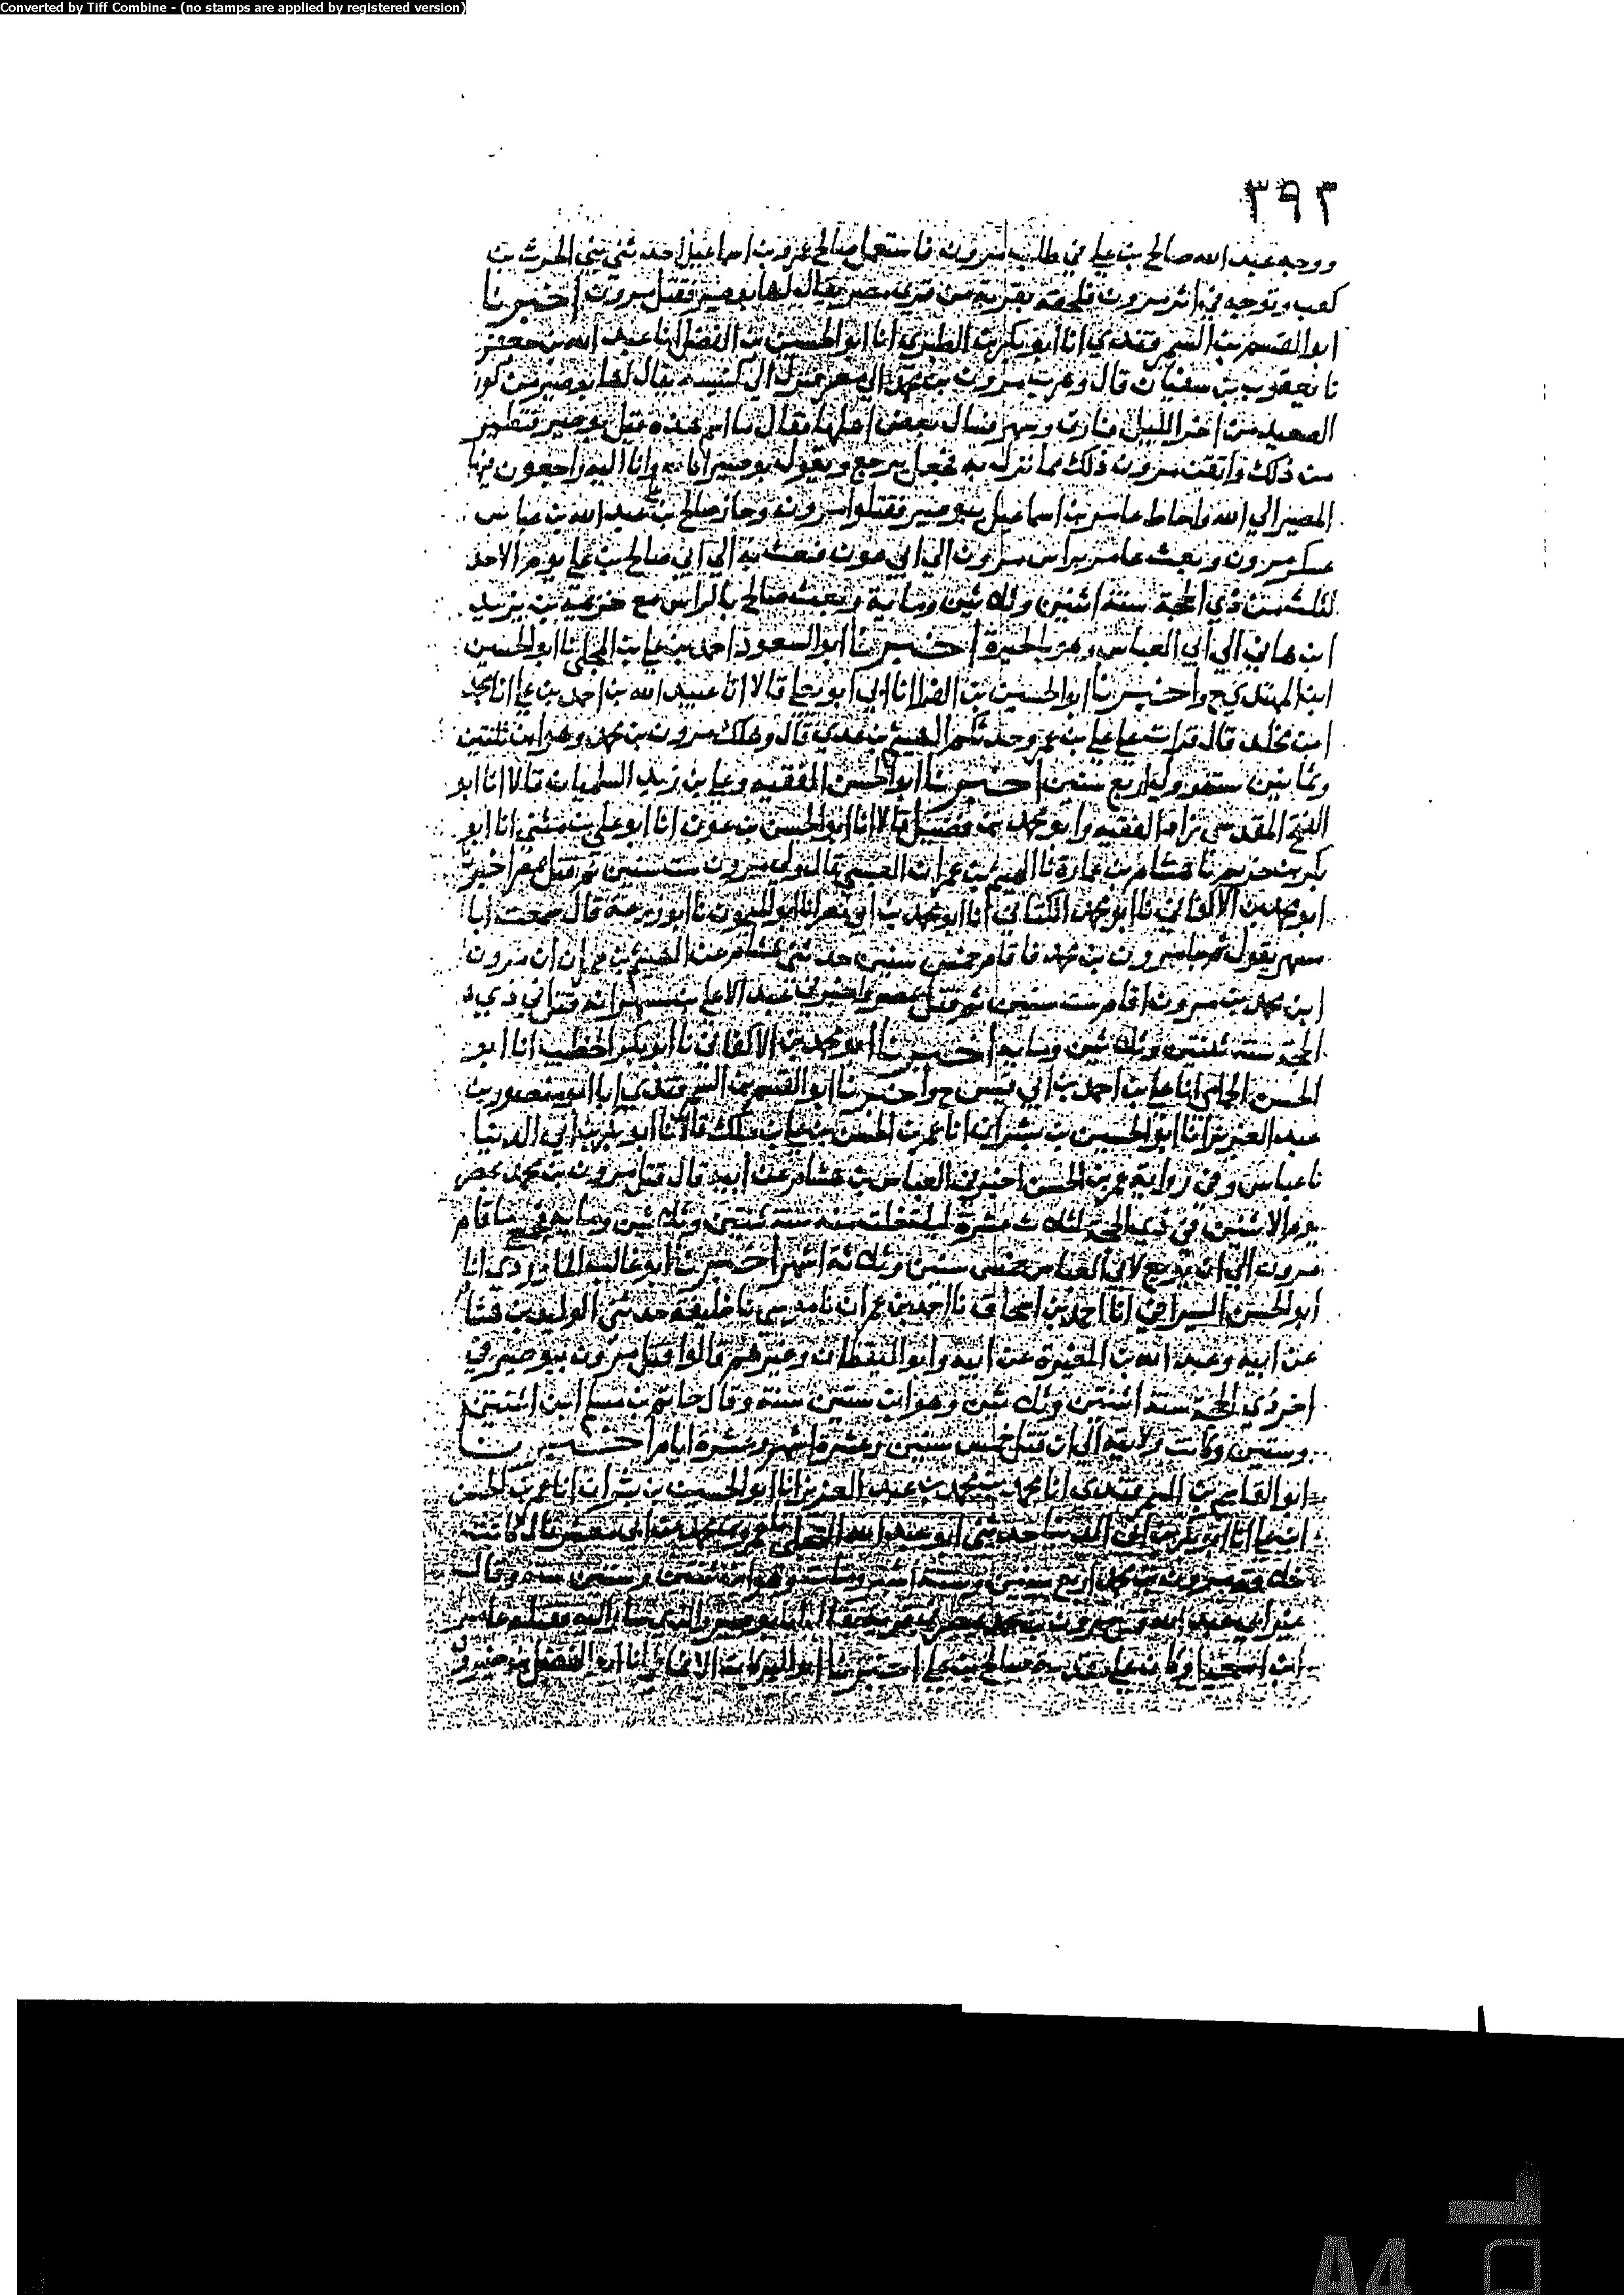 Converted by Tiff Combine - (no stamps are applied by registered version)
٣٩٢
ووجه عبد الله صالح بن علي في طلب مرون فاستعمل صالح عمرو بن اسماعيل احد بني الحرث بن
كعب وتوجه في اثر مرون فلحقه بقرية من قرى مصر يقال لها بوصير فقتل مرون اخبرنا
ابو القسم بن السمرقندي انا ابو بكر بن الطبري انا ابو الحسين بن الفضل انا عبد الله بن جعفر
نا يعقوب بن سفيان قال وهرب مرون بن محمد الى مصر فنزل الى كنيسة يقال لها بوصير من كور
الصعيد من اخر الليل فسال بعض اهلها فقال ما اسم هذه قيل بوصير فتطير
من ذلك وايقن مرون ذلك مما نزل به فجعل يرجع ويقول بوصير انا لله وانا اليه راجعون
المصير الى الله واحاط عامر بن اسماعيل ببوصير فقتلوا مرون وحاز صالح بن علي عبد الله بن عباس
عسكر مرون وبعث عامر براس مرون الى ابي عون فبعث به الى صالح بن علي يوم الاحد
لثلث من ذي الحجة سنة اثنين وثلاثين وماية وبعث صالح بالراس مع خزيمة بن يزيد
ابن هاني الى ابي العباس وهو بالحيرة اخبرنا ابو السعود احمد بن علي بن المجلي انا ابو الحسين
ابن المهتدي ح واخبرنا ابو الحسين بن الفرا انا ابي ابو يعلى قالا انا عبيد الله بن احمد بن علي انا محمد
ابن مخلد قال قرات على علي بن عمرو حدثكم الهيثم بن عدي قال وملك مرون بن محمد وهو ابن ثلثين
اربع سنين اخبرنا ابو الحسن الفقيه وعلي بن زيد السلميان قالا انا ابو
الفتح المقدسي زاد الفقيه وابو محمد بن فضيل قالا انا ابو الحسن بن عوف انا ابو علي بن منير انا ابو
بكر بن خريم نا هشام بن عمار نا الهيثم بن عمران العبسي قال ولي مرون ست سنين ثم قتل بمصر اخبرنا
ابو محمد بن الاكفاني نا ابو محمد الكتاني انا ابو محمد بن ابي نصر انا ابو الميمون نا ابو زرعة قال سمعت ابا
مسهر يقول مرون بن محمد فاقام خمس سنين حدثني هشام عن الهيثم بن عمران ان مرون
ابن محمد بن مرون اقام ست سنين ثم قتل بمصر واخبرني عبد الاعلى بن مسهر انه قتل في ذي
الحجة سنة ثنتين وثلاثين وماية اخبرنا ابو محمد بن الاكفاني نا ابو بكر الخطيب انا ابو
الحسن الحمامي انا علي بن احمد بن ابي قيس ح واخبرنا ابو القسم بن السمرقندي انا ابو منصور بن
عبد العزيز انا ابو الحسين بن بشران انا عمر بن الحسن بن علي بن ملك قالا نا ابو بكر بن ابي الدنيا
نا عباس وفي رواية عمر بن الحسن اخبرني العباس بن هشام عن ابيه قال قتل مرون بن محمد بمصر
يوم الاثنين في ذي الحجة لثلاث عشرة ليلة خلت منه سنة ثنتين وثلاثين وماية فاقام
مرون الى ان بويع لابي العباس خمس سنين وثلاثة اشهر اخبرنا ابو غالب الماوردي انا
ابو الحسن السيرافي انا احمد بن اسحاق نا احمد بن عمران نا موسى نا خليفة حدثني الوليد بن هشام
عن ابيه وعبد الله بن المغيرة عن ابيه وابو اليقظان وغيرهم قالوا قتل مرون ببوصير في
اخر ذي الحجة سنة اثنتين وثلاثين وهو ابن ستين سنة وقال حاتم بن مسلم ابن اثنتين
وستين وكانت ولايته الى ان قتل خمس سنين وعشرة اشهر وعشرة ايام اخبرنا
ابو القاسم بن السمرقندي انا محمد بن محمد بن عبد العزيز انا ابو الحسين بن بشران انا عمر بن الحسن
انا ابو بكر بن ابي الدنيا حدثني ابو عبد الله العجلي عن محمد بن ابي معشر قال كانت
خلافة مرون بن محمد اربع سنين وستة اشهر وقتل وهو ابن ثنتين وستين سنة وقال
غير ابي عبد الله قتل مرون بن محمد بمصر
وكان على مقدمة صالح بن علي اخبرنا ابو البركات الانماطي انا ابو الفضل بن خيرون
A4